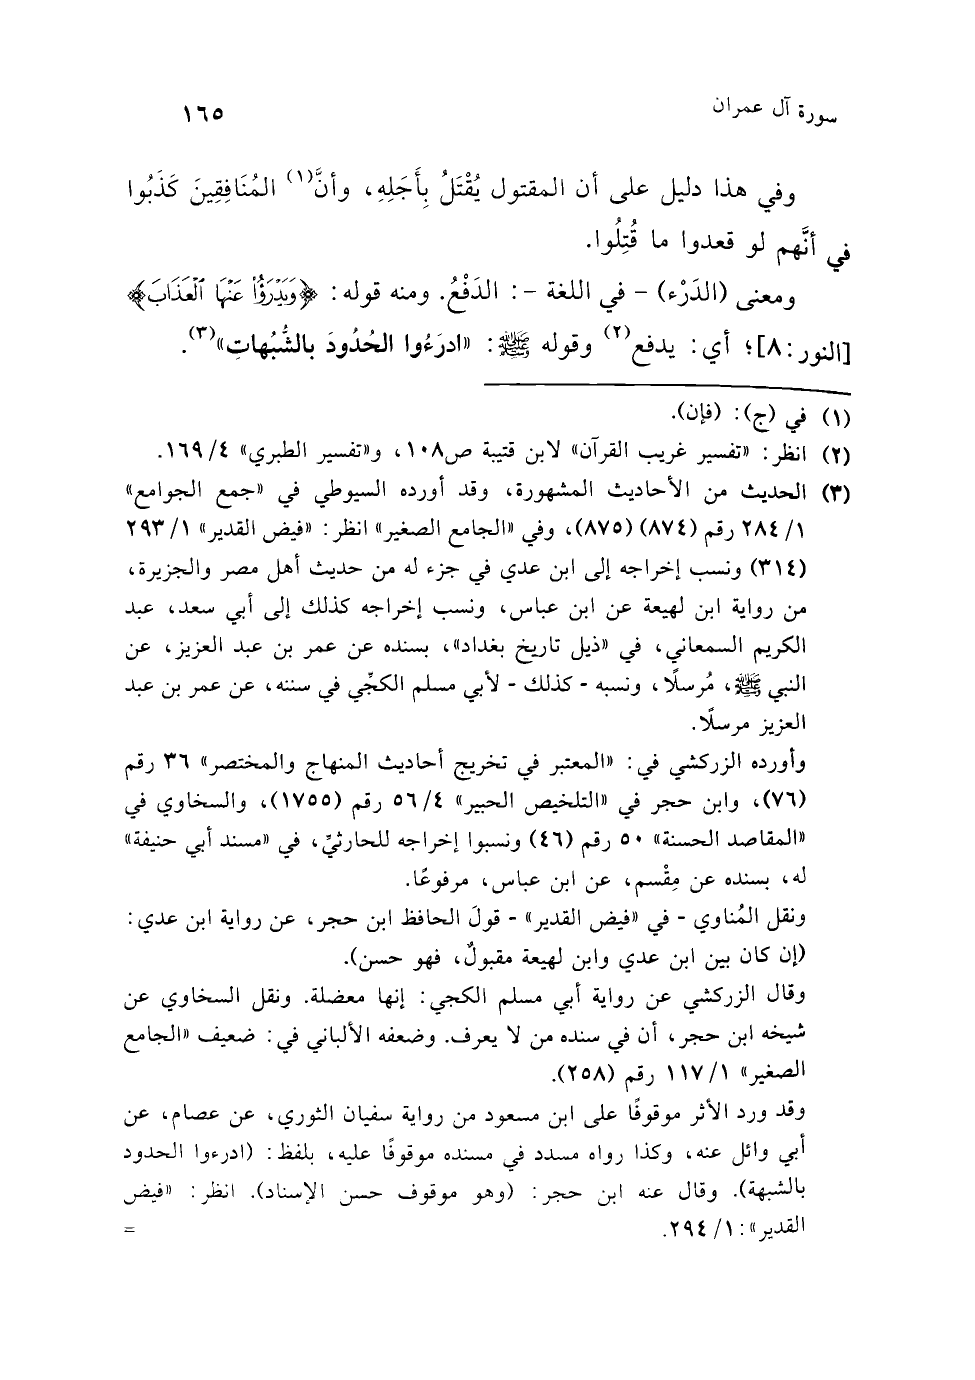 سورة آل عمران ١٦٥
وفي هذا دليل على أن المقتول يُقْتَلُ بِأَجَلِهِ، وأنَّ(١) المُنَافِقِينَ كَذَبُوا
في أنَّهم لو قعدوا ما قُتِلُوا.
ومعنى (الدَرْء) - في اللغة -: الدَفْعُ. ومنه قوله: ﴿وَيَدْرَؤُا۟ عَنْهَا ٱلْعَذَابَ﴾
[النور:٨]؛ أي: يدفع(٢) وقوله ﷺ: «ادرَءُوا الحُدُودَ بالشُّبُهاتِ»(٣).
(١) في (ج): (فإن).
(٢) انظر: «تفسير غريب القرآن» لابن قتيبة ص١٠٨، و«تفسير الطبري» ٤/ ١٦٩.
(٣) الحديث من الأحاديث المشهورة، وقد أورده السيوطي في «جمع الجوامع»
١/ ٢٨٤ رقم (٨٧٤) (٨٧٥)، وفي «الجامع الصغير» انظر: «فيض القدير» ١/ ٢٩٣
(٣١٤) ونسب إخراجه إلى ابن عدي في جزء له من حديث أهل مصر والجزيرة،
من رواية ابن لهيعة عن ابن عباس، ونسب إخراجه كذلك إلى أبي سعد، عبد
الكريم السمعاني، في «ذيل تاريخ بغداد»، بسنده عن عمر بن عبد العزيز، عن
النبي ﷺ، مُرسلًا، ونسبه - كذلك - لأبي مسلم الكجِّي في سننه، عن عمر بن عبد
العزيز مرسلًا.
وأورده الزركشي في: «المعتبر في تخريج أحاديث المنهاج والمختصر» ٣٦ رقم
(٧٦)، وابن حجر في «التلخيص الحبير» ٤/ ٥٦ رقم (١٧٥٥)، والسخاوي في
«المقاصد الحسنة» ٥٠ رقم (٤٦) ونسبوا إخراجه للحارثيِّ، في «مسند أبي حنيفة»
له، بسنده عن مِقْسم، عن ابن عباس، مرفوعًا.
ونقل المُناوي - في «فيض القدير» - قولَ الحافظ ابن حجر، عن رواية ابن عدي:
(إن كان بين ابن عدي وابن لهيعة مقبولٌ، فهو حسن).
وقال الزركشي عن رواية أبي مسلم الكجي: إنها معضلة. ونقل السخاوي عن
شيخه ابن حجر، أن في سنده من لا يعرف. وضعفه الألباني في: ضعيف «الجامع
الصغير» ١/ ١١٧ رقم (٢٥٨).
وقد ورد الأثر موقوفًا على ابن مسعود من رواية سفيان الثوري، عن عصام، عن
أبي وائل عنه، وكذا رواه مسدد في مسنده موقوفًا عليه، بلفظ: (ادرءوا الحدود
بالشبهة). وقال عنه ابن حجر: (وهو موقوف حسن الإسناد). انظر: «فيض
القدير»: ١/ ٢٩٤. =